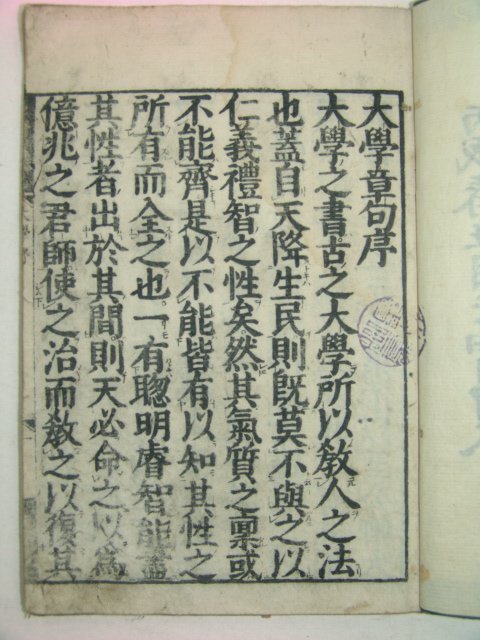 大學章句序
大學之書古之大學所以敎人之法
也蓋自天降生民則既莫不與之以
仁義禮智之性矣然其氣質之稟或
不能齊是以不能皆有以知其性之
所有而全之也一有聰明睿智能盡
其性者出於其間則天必命之以爲
億兆之君師使之治而敎之以復其